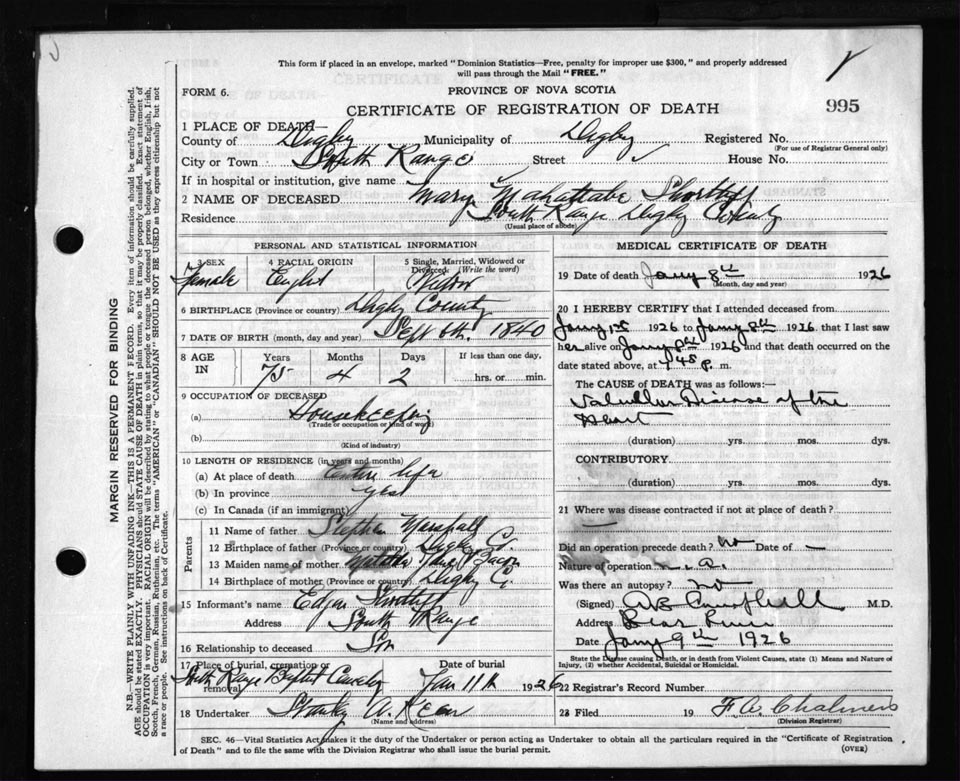 This form if placed in an envelope, marked "Dominion Statistics—Free, penalty for improper use $300," and properly addressed
will pass through the Mail "FREE."
FORM 6.
PROVINCE OF NOVA SCOTIA
CERTIFICATE OF REGISTRATION OF DEATH
995
1 PLACE OF DEATH—
County of Digby Municipality of Digby Registered No.
(For use of Registrar General only)
City or Town South Range Street House No.
If in hospital or institution, give name
2 NAME OF DECEASED Mary
Residence South Range Digby County
(Usual place of abode)
PERSONAL AND STATISTICAL INFORMATION
3 SEX 4 RACIAL ORIGIN 5 Single, Married, Widowed or
Divorced. (Write the word)
Female English Widow
6 BIRTHPLACE (Province or country) Digby County
7 DATE OF BIRTH (month, day and year) Sept 6th. 1840
8 AGE IN Years Months Days If less than one day,
75 4 2 hrs. or min.
9 OCCUPATION OF DECEASED
(a) Housekeeping
(Trade or occupation or kind of work)
(b)
(Kind of industry)
10 LENGTH OF RESIDENCE (in years and months)
(a) At place of death Entire life
(b) In province
(c) In Canada (if an immigrant)
Parents
11 Name of father Stephen Marshall
12 Birthplace of father (Province or country) Digby Co.
13 Maiden name of mother
14 Birthplace of mother (Province or country) Digby Co.
15 Informant's name Edgar
Address South Range
16 Relationship to deceased Son
17 Place of burial, cremation or removal Date of burial
South Range Baptist Cemetery Jan 11th 1926
18 Undertaker Stanley A.
(Name and address)
MEDICAL CERTIFICATE OF DEATH
19 Date of death Jany 8th 1926
(Month, day and year)
20 I HEREBY CERTIFY that I attended deceased from
Jany 1st 1926 to Jany 8th 1926 that I last saw
her alive on Jany 8th 1926 and that death occurred on the
date stated above, at 45 p. m.
The CAUSE of DEATH was as follows:—
Valvular Disease of the
Heart
(duration) yrs. mos. dys.
CONTRIBUTORY
(duration) yrs. mos. dys.
21 Where was disease contracted if not at place of death?
Did an operation precede death? no Date of —
Nature of operation
Was there an autopsy? no
(Signed) AB Campbell M.D.
Address Bear River
Date Jany 9th 1926
State the Disease causing Death, or in death from Violent Causes, state (1) Means and Nature of
Injury, (2) whether Accidental, Suicidal or Homicidal.
22 Registrar's Record Number
23 Filed 19 F. W. Chalmers
(Division Registrar)
SEC. 46—Vital Statistics Act makes it the duty of the Undertaker or person acting as Undertaker to obtain all the particulars required in the "Certificate of Registration
of Death" and to file the same with the Division Registrar who shall issue the burial permit.
(OVER)
MARGIN RESERVED FOR BINDING
N.B.—WRITE PLAINLY WITH UNFADING INK—THIS IS A PERMANENT RECORD. Every item of information should be carefully supplied.
AGE should be stated EXACTLY. PHYSICIANS should STATE CAUSE OF DEATH in plain terms, so that it may be properly classified. Exact statement of
OCCUPATION is very important. RACIAL ORIGIN will be described by stating to what people or tongue the deceased person belonged, whether English, Irish,
Scotch, French, German, Russian, Ruthenian, etc. The terms "AMERICAN" or "CANADIAN" SHOULD NOT BE USED as they express citizenship but not
a race or people. See instructions on back of Certificate.